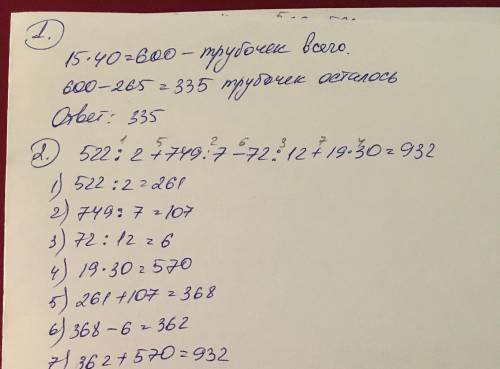 1.
15·40=600 – трубочек всего.
600–265=335 трубочек осталось
Ответ: 335
2. 522:2+749:7–72:12+19·30=932
1 5 2 6 3 7 4
1) 522:2=261
2) 749:7=107
3) 72:12=6
4) 19·30=570
5) 261+107=368
6) 368–6=362
7) 362+570=932